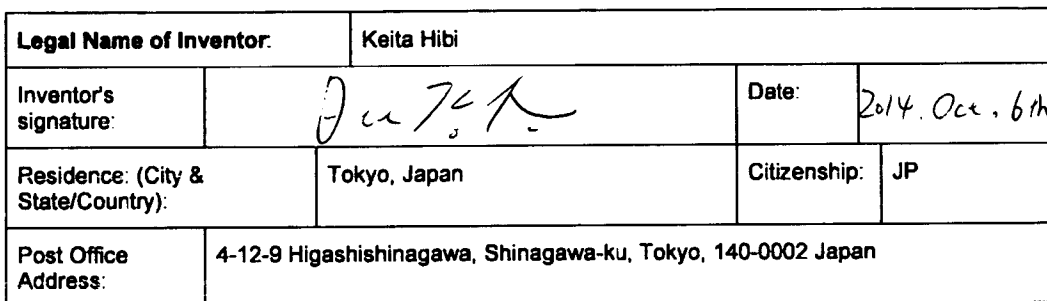 Legal Name of Inventor: Keita Hibi
Inventor's signature: Date: 2014. Oct. 6th
Residence: (City & State/Country): Tokyo, Japan Citizenship: JP
Post Office Address: 4-12-9 Higashishinagawa, Shinagawa-ku, Tokyo, 140-0002 Japan